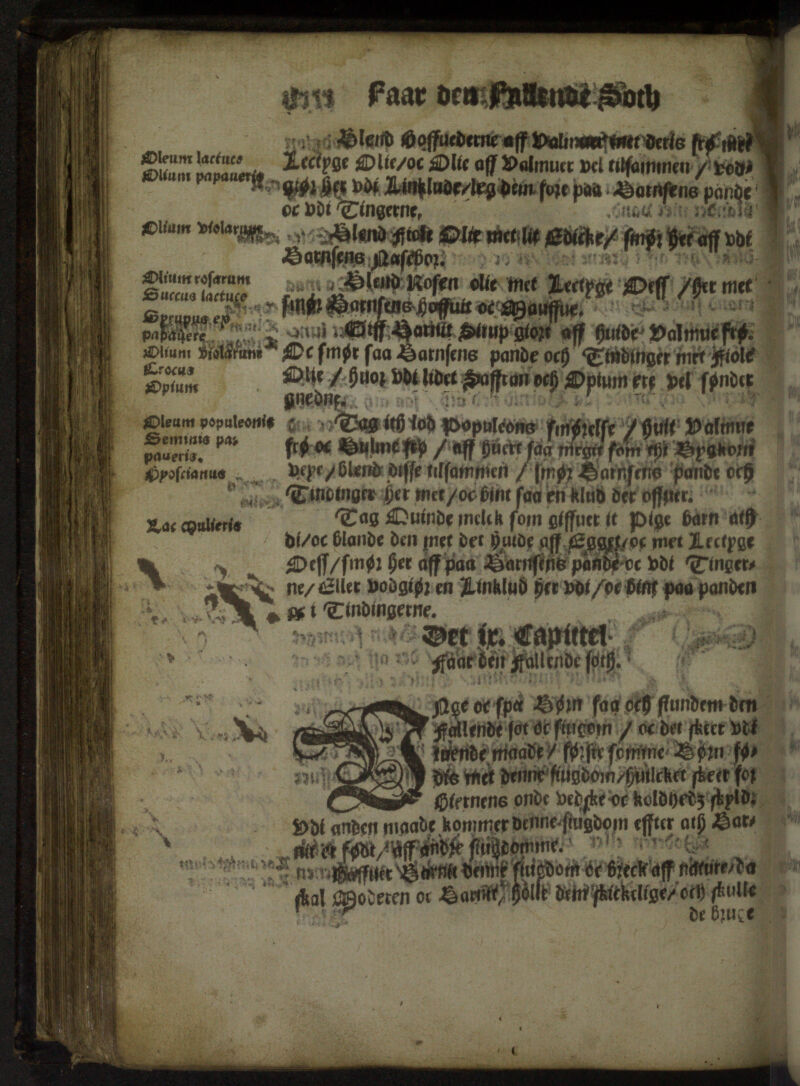 Faar den Fallende Soth
Oleum lactuce
Oleum papaueris
Blend Hoffuederne aff Valmuer
Lectyge Olie/oc Olie aff Valmuer vel tilsammen /
vdi Linklude/leg dem foie paa Barnsens pande
oc vdi Tingerne,
Olium violarum
Blend Fiole Olie met lit Edicke/ smør her aff vdi
Barnsens Nasebor.
Olium rosarum
Succus lactuce
Blend Rosen olie met Lectyge Oeff /her met
smør Barnsens hoffuit oc
papauere
Giff Barnit Sirup giort aff huide Valmue frø.
Olium violarum
Crocus
Opium
Oc smør saa Barnsens pande och Tindinger met Fiole
Olie / huor vdi lidet Saffran och Opium ere vel sønder
gnedne.
Oleum populeonis
Seminis pa-
paueris.
Oposcianus
Tag ith lod Populeons smørelse / huit Valmue
frø oc Bulme frø / aff huert saa meget som
veye/blend disse tilsammen / smør Barnsens pande och
Tindinger her met/oc bint saa en klud der offuer.
Lac mulieris
Tag Quinde melck som giffuer it Pige barn ath
di/oc blande den met det huide aff Egget/oc met Lectyge
Oeff/smør her aff paa Barnsens pande oc vdi Tinger-
ne/Eller vodgiør en Linklud her vdi/oc bint paa panden
oc i Tindingerne.
Det ix. Capittel
Faar den Fallende soth.
oc spa Børn saa och stundem den
Fallende sot oc siugdom / oc det skeer vdi
maade/ først somme Børn fø-
dis met denne siugdom/huilcket skeer for
Hiernens onde vedske oc koldheds skyld:
Vdi anden maade kommer denne siugdom effter ath Bar-
nit er født/aff andre siugdomme.
denne siugdom oc breck aff nature/da
skal Moderen oc Barnit/ holle dem skickelige/och skulle
de bruge